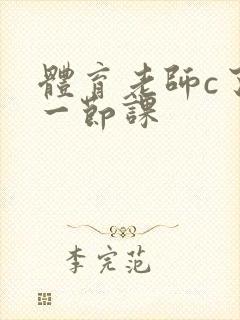 體育老師c了
一節課
李完范